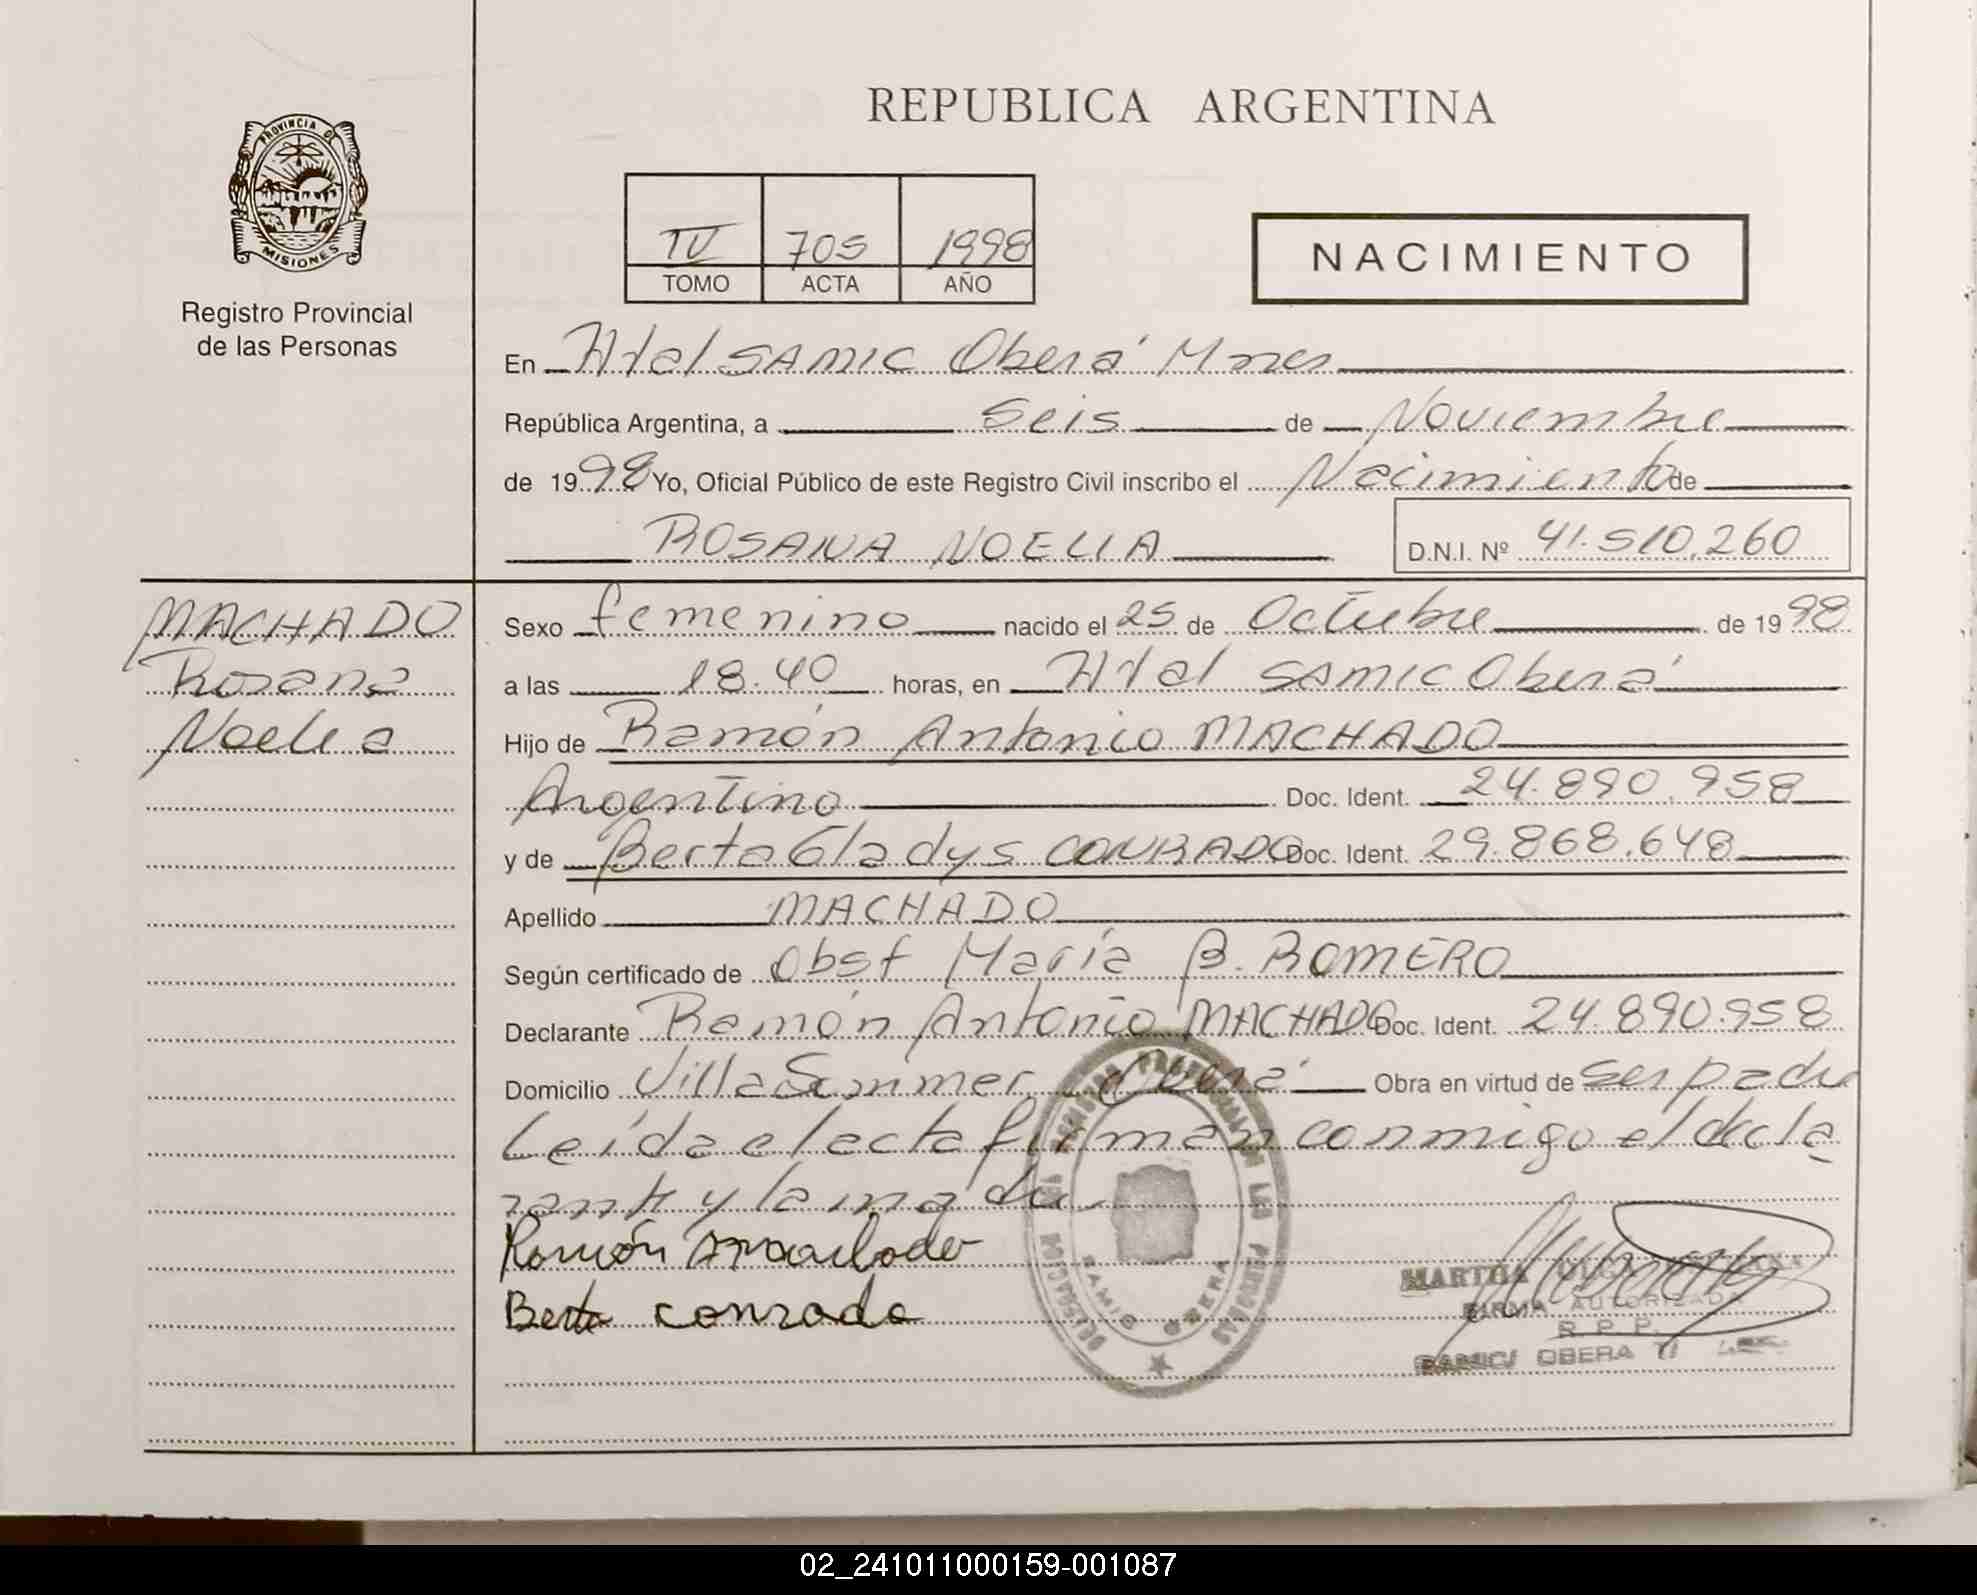 REPUBLICA ARGENTINA
PROVINCIA DE
MISIONES
Registro Provincial
de las Personas
IV 705 1998
TOMO ACTA AÑO
NACIMIENTO
En Htal SAMIC Oberá Mnes
República Argentina, a Seis de Noviembre
de 1998 Yo, Oficial Público de este Registro Civil inscribo el Nacimiento de
ROSANA NOELIA D.N.I. Nº 41.510.260
MACHADO
Rosana
Noelia
Sexo femenino nacido el 25 de Octubre de 1998
a las 18.40 horas, en Htal SAMIC Oberá
Hijo de Ramón Antonio MACHADO
Argentino Doc. Ident. 24.890.958
y de Berta Gladys CONRADO Doc. Ident. 29.868.648
Apellido MACHADO
Según certificado de Obst María B. ROMERO
Declarante Ramón Antonio MACHADO Doc. Ident. 24.890.958
Domicilio Villa Sommer Oberá Obra en virtud de ser padre
Leída el acta firman conmigo el decla
rante y la madre
Ramón Machado
Berta conrado
SAMIC OBERA
MARTHA OLGA
FIRMA AUTORIZADA
R. P. P.
SAMIC OBERA
02_241011000159-001087